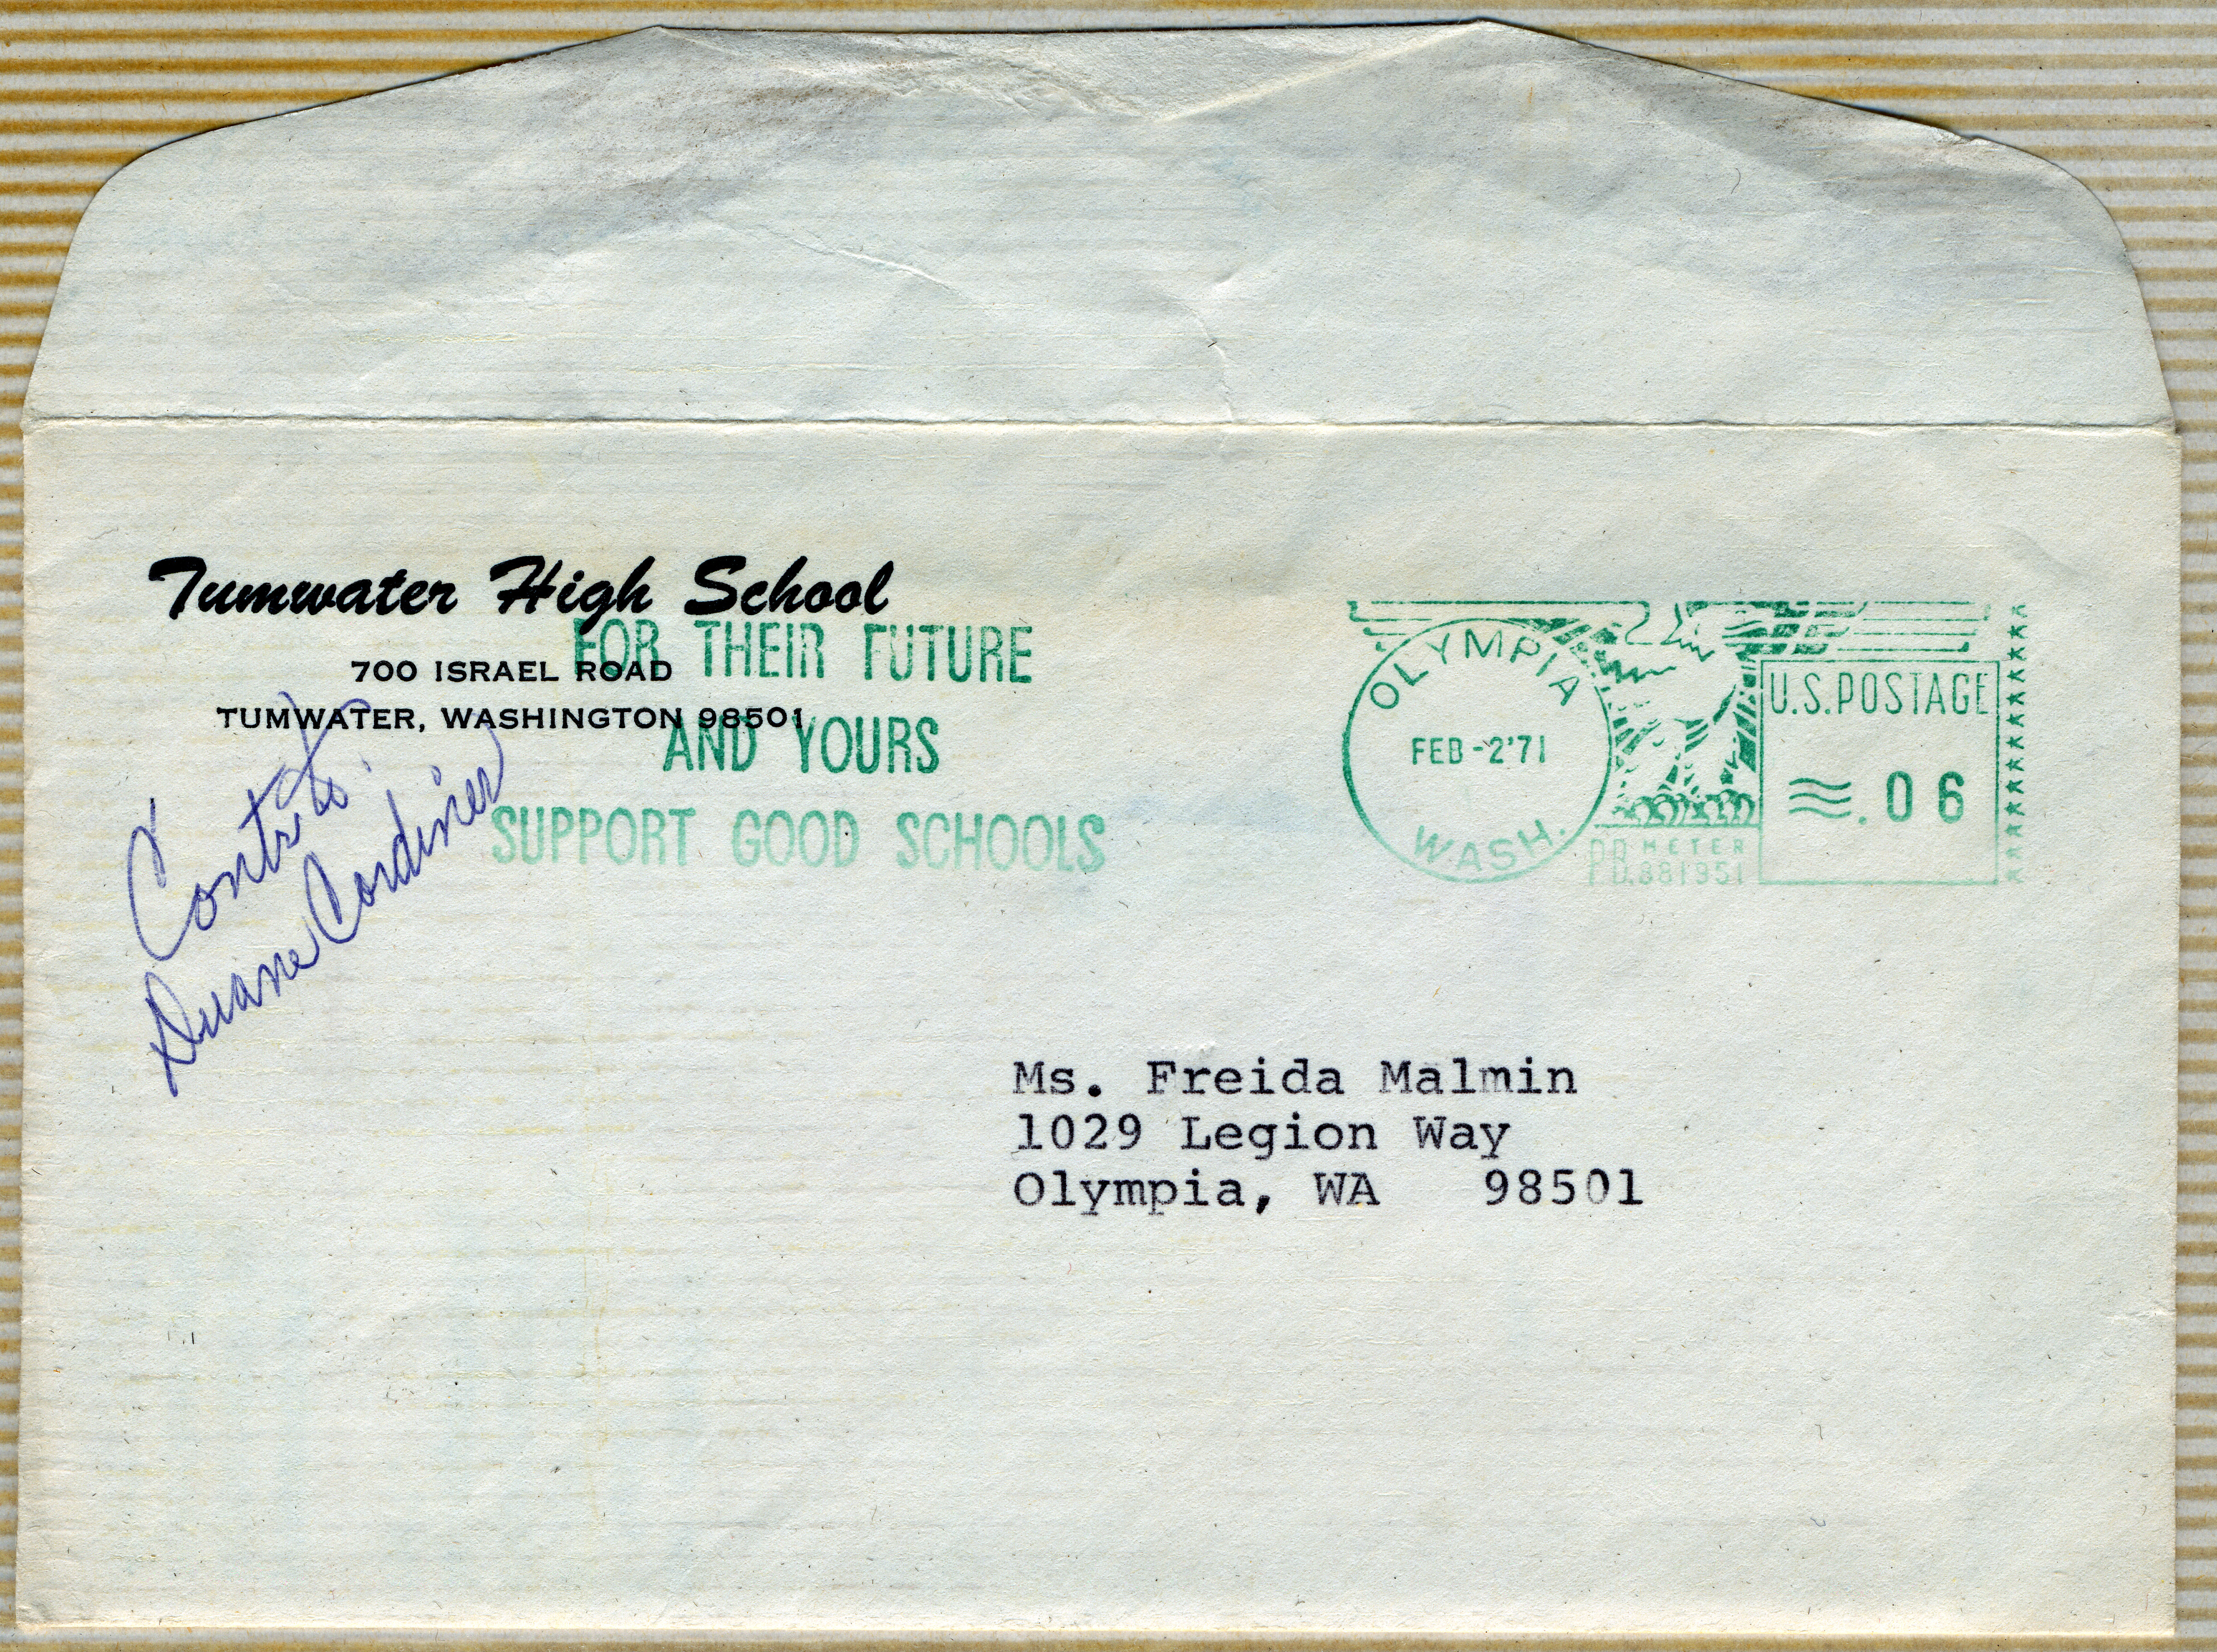 Tumwater High School
700 ISRAEL ROAD
TUMWATER, WASHINGTON 98501
FOR THEIR FUTURE
AND YOURS
SUPPORT GOOD SCHOOLS
OLYMPIA
FEB-2'71
WASH.
U.S.POSTAGE
.06
P.B. METER
881951
Duane Cordiner
Ms. Freida Malmin
1029 Legion Way
Olympia, WA 98501